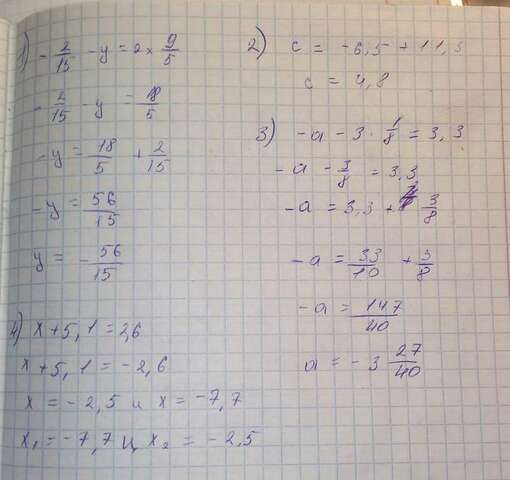 1) - 2/15 - y = 2 × 9/5
- 2/15 - y = 18/5
- y = 18/5 + 2/15
- y = 56/15
y = - 56/15
2) c = -6,5 + 11,3
c = 4,8
3) - a - 3 · 1/8 = 3,3
- a - 3/8 = 3,3
- a = 3,3 + 3/8
- a = 33/10 + 3/8
- a = 147/40
a = - 3 27/40
4) x + 5,1 = 2,6
x + 5,1 = - 2,6
x = - 2,5 и x = - 7,7
x₁ = - 7,7 и x₂ = - 2,5